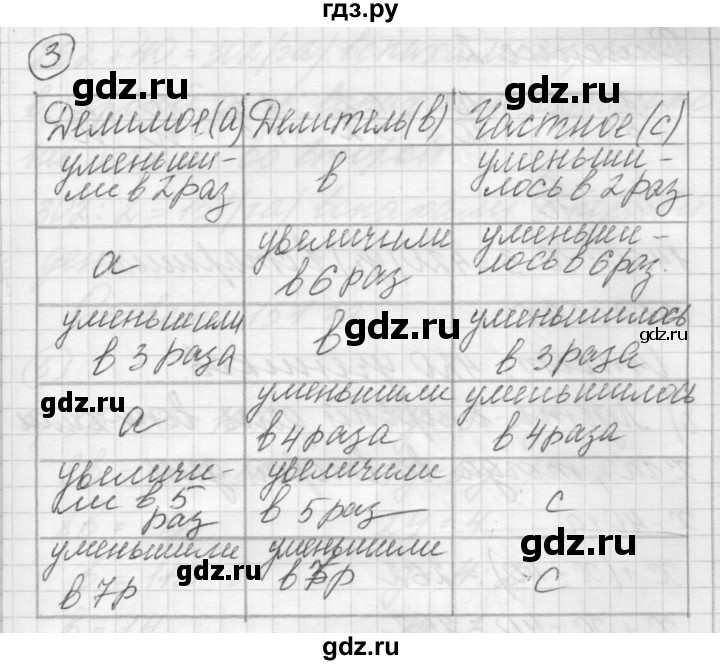 гдз.ру
3
gdz.ru gdz.ru gdz.ru
Делимое(а) Делитель(в) Частное(с)
уменьши- в уменьши-
ли в 2 раз лось в 2 раз
а увеличили уменьши-
в 6 раз лось в 6 раз.
gdz.ru
уменьшили в уменьшилось
в 3 раза в 3 раза
gdz.ru
gdz.ru
а уменьшили уменьшилось
в 4 раза в 4 раза
увеличи- увеличили с
ли в 5 в 5 раз
раз
gdz.ru
уменьшили уменьшили с
в 7р в 7р
gdz.ru
gdz.ru